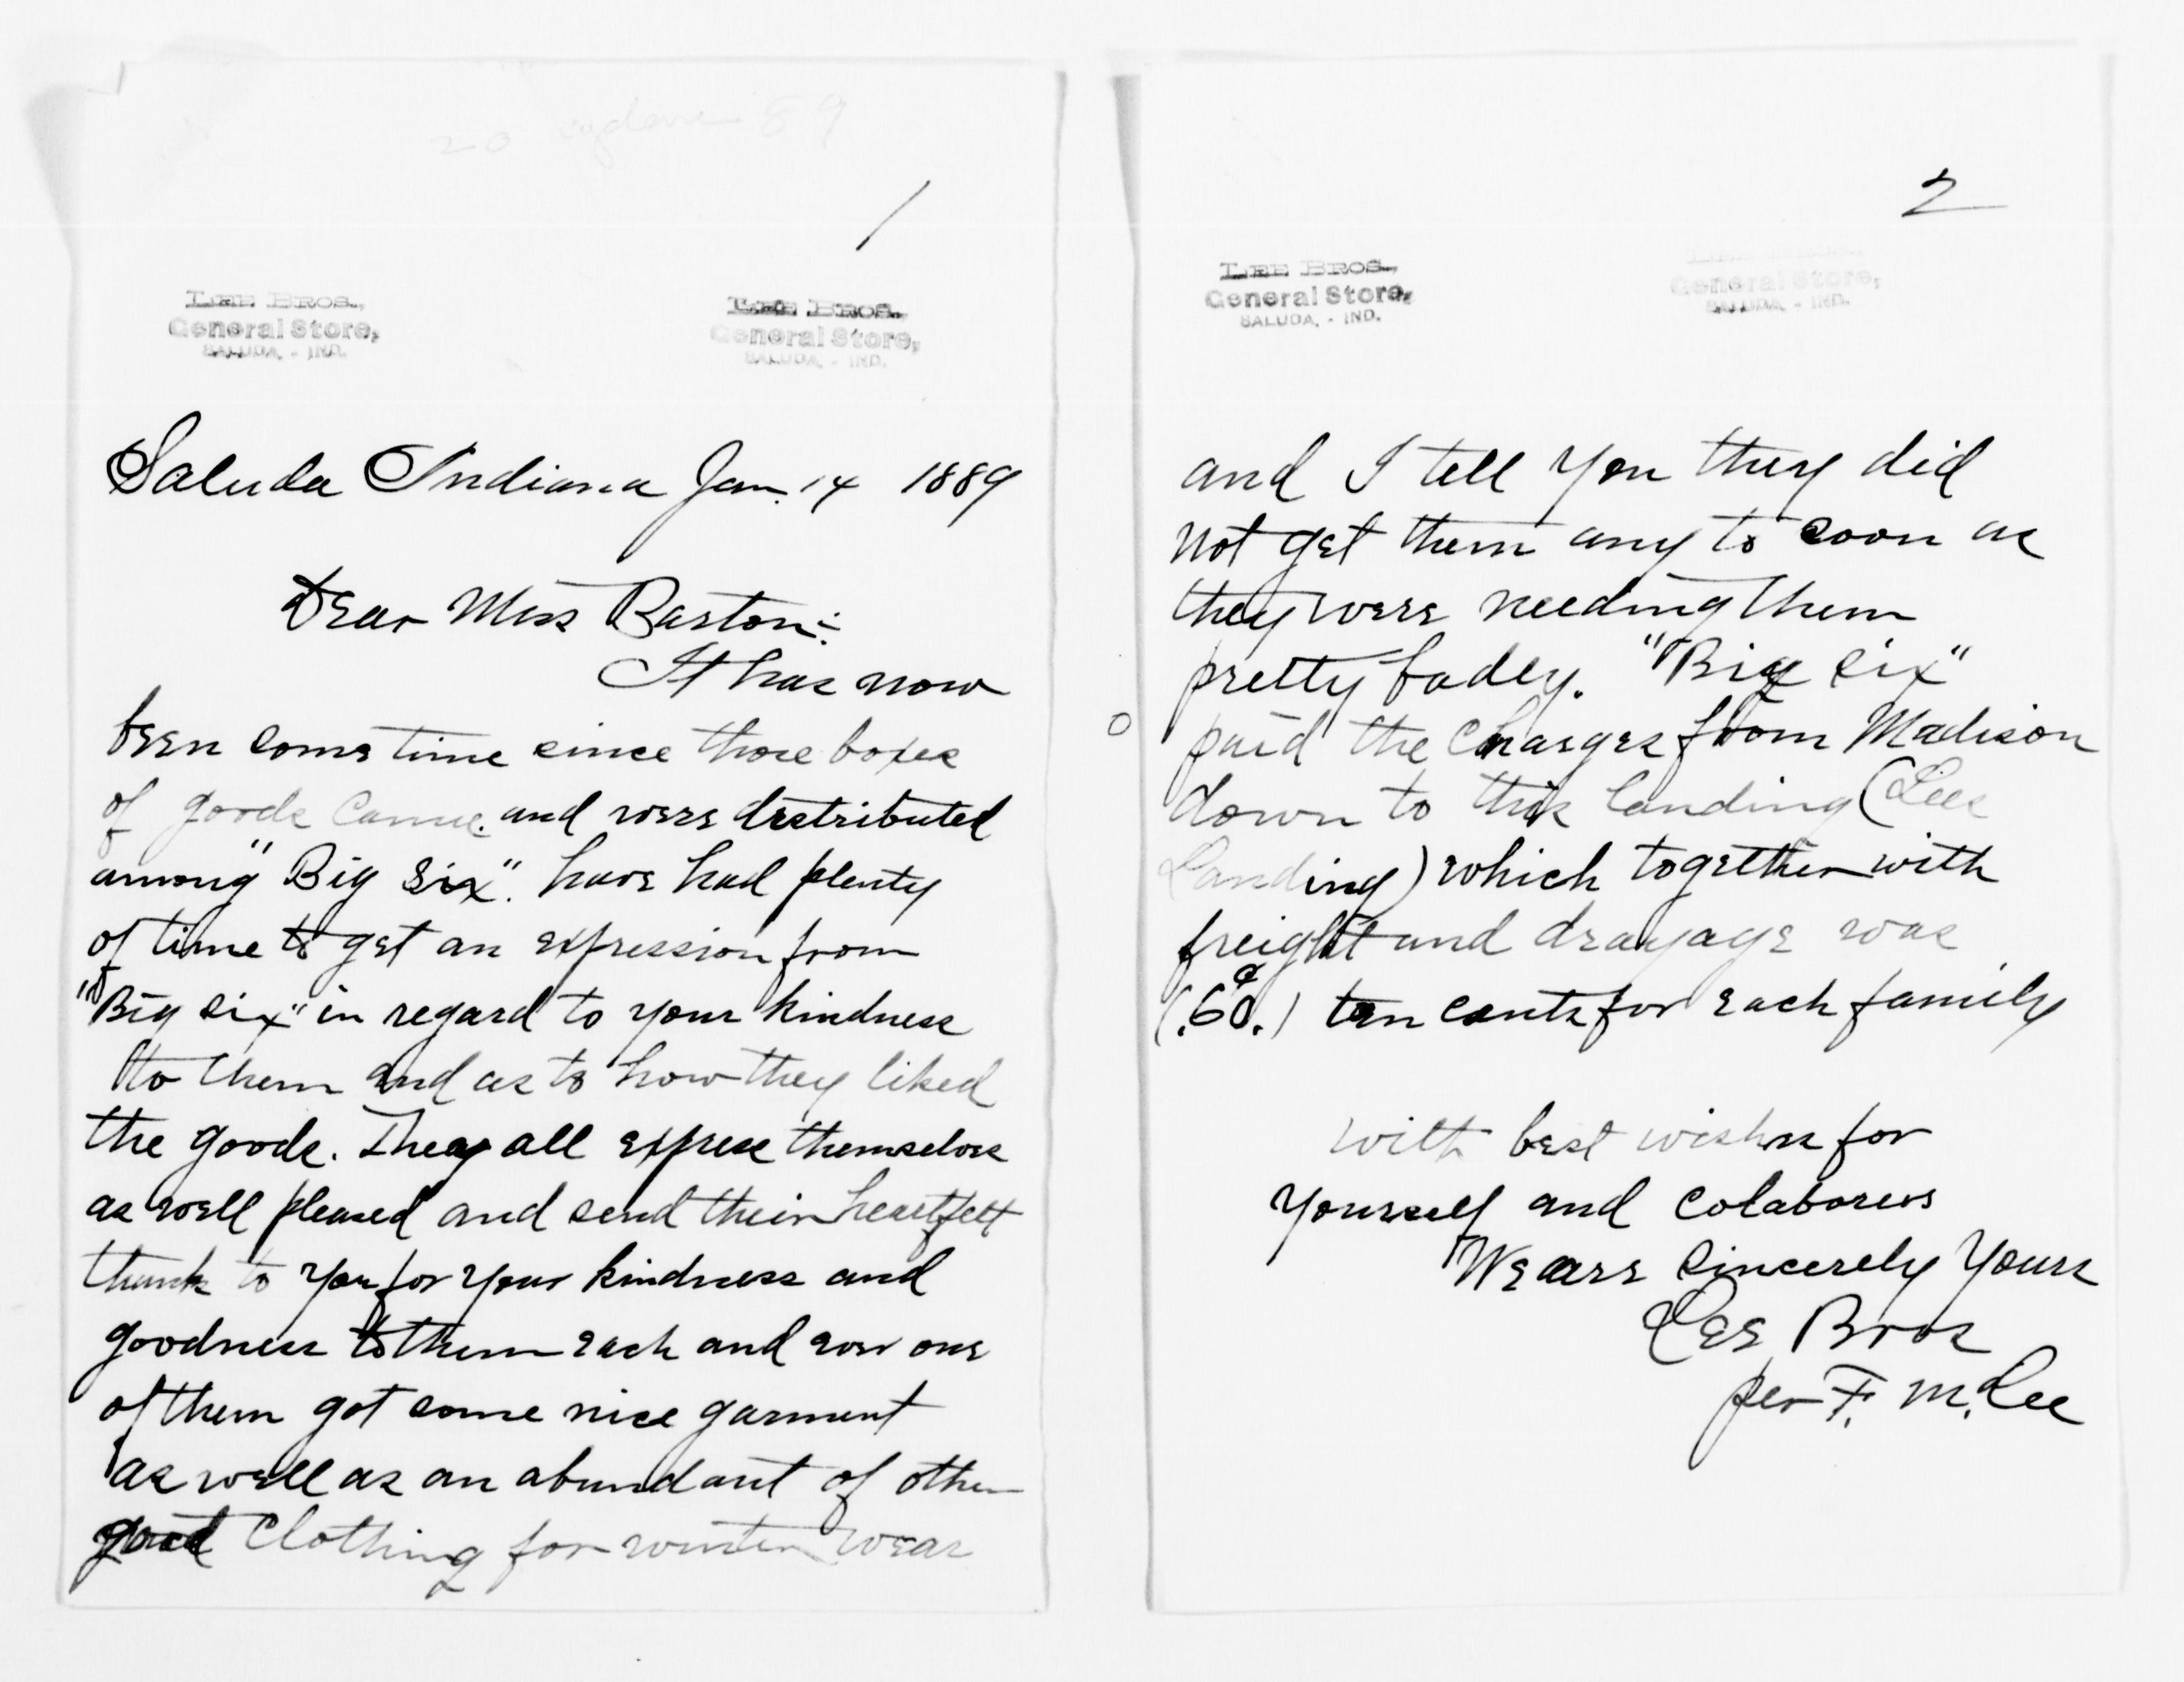 1
LEE BROS.,
General Store,
SALUDA, - IND.
LEE BROS.,
General Store,
SALUDA, - IND.
Saluda Indiana Jan. 14 1889
Dear Miss Barton:-
It has now
been some time since those boxes
of goods came. and were distributed
among "Big Six". have had plenty
of time to get an expression from
"Big Six" in regard to your kindness
to them and as to how they liked
the goods. They all express themselves
as well pleased and send their heartfelt
thanks to you for your kindness and
goodness to them each and every one
of them got some nice garment
as well as an abundant of other
good Clothing for winter wear
2
LEE BROS.,
General Store,
SALUDA, - IND.
General Store,
SALUDA, - IND.
and I tell you they did
not get them any to soon as
they were needing them
pretty badly. "Big Six"
paid the Charges from Madison
down to this landing (Lees
Landing) which together with
freight and drayage was
(.60¢.) ten cents for each family
with best wishes for
yourself and colaborers
We are sincerely Yours
Lee Bros
per F. M. Lee